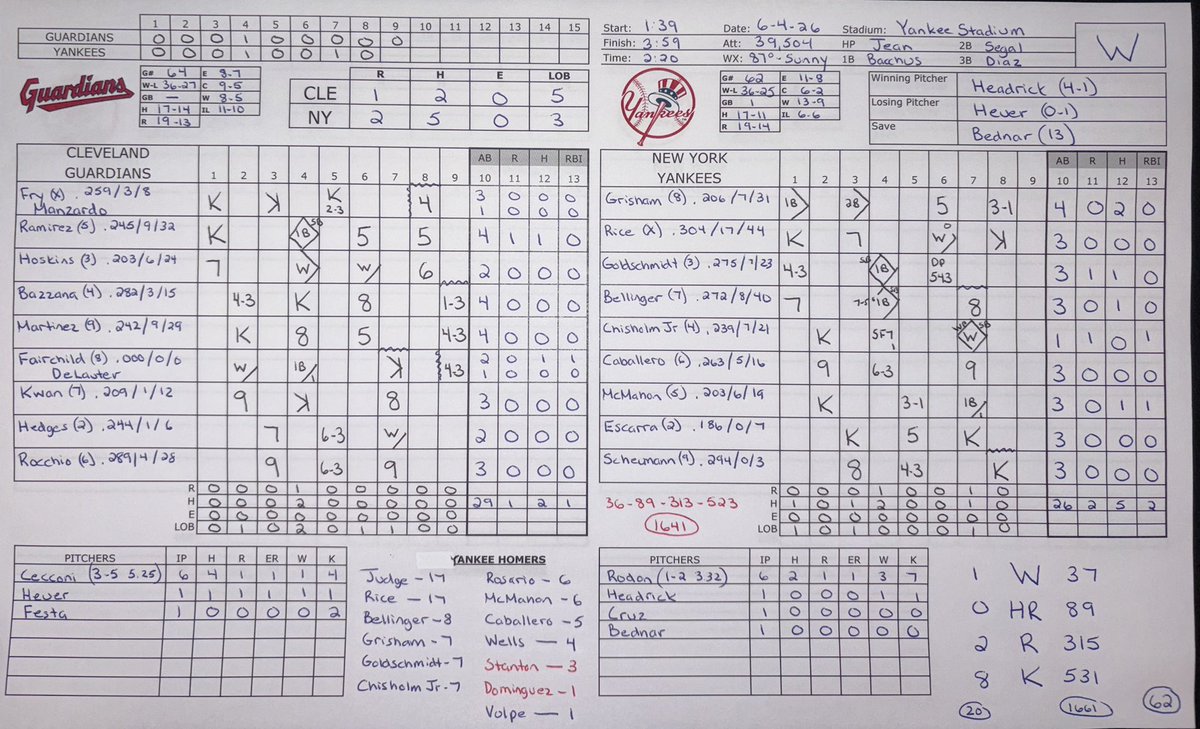 1 2 3 4 5 6 7 8 9 10 11 12 13 14 15
GUARDIANS 0 0 0 1 0 0 0 0 0
YANKEES 0 0 0 1 0 0 1 0
Guardians
G# 64 E 8-7
W-L 36-27 C 9-5
GB — W 8-5
H 17-14 IL 11-10
R 19-13
R H E LOB
CLE 1 2 0 5
NY 2 5 0 3
Start: 1:39 Date: 6-4-26 Stadium: Yankee Stadium
Finish: 3:59 Att: 39,504 HP Jean 2B Segal
Time: 2:20 WX: 87° - Sunny 1B Bacchus 3B Diaz
W
Yankees
G# 62 E 11-8
W-L 36-25 C 6-2
GB 1 W 13-9
H 17-11 IL 6-6
R 19-14
Winning Pitcher Headrick (4-1)
Losing Pitcher Heuer (0-1)
Save Bednar (13)
CLEVELAND GUARDIANS 1 2 3 4 5 6 7 8 9 AB R H RBI
10 11 12 13
Fry (X) .259/3/8 K K K 2-3 3 0 0 0
Manzardo 4 1 0 0 0
Ramirez (5) .245/9/32 K 1B SB 5 5 4 1 1 0
Hoskins (3) .203/6/24 7 W W 6 2 0 0 0
Bazzana (4) .282/3/15 4-3 K 8 1-3 4 0 0 0
Martinez (9) .242/9/29 K 8 5 4-3 4 0 0 0
Fairchild (8) .000/0/0 W 1B 1 K 2 0 1 1
DeLauter 4-3 1 0 0 0
Kwan (7) .209/1/12 9 K 8 3 0 0 0
Hedges (2) .244/1/6 7 6-3 W 2 0 0 0
Rocchio (6) .289/4/28 9 6-3 9 3 0 0 0
R 0 0 0 1 0 0 0 0 0
H 0 0 0 2 0 0 0 0 0 29 1 2 1
E 0 0 0 0 0 0 0 0 0
LOB 0 1 0 2 0 1 1 0 0
NEW YORK YANKEES 1 2 3 4 5 6 7 8 9 AB R H RBI
10 11 12 13
Grisham (8) .206/7/31 1B 2B 5 3-1 4 0 2 0
Rice (X) .304/17/44 K 7 W K 3 0 0 0
Goldschmidt (3) .275/7/23 4-3 SB 1B DP 543 3 1 1 0
Bellinger (7) .272/8/40 7 7-5 1B SB 8 3 0 1 0
Chisholm Jr (4) .239/7/21 K SF7 1 WP W SB 1 1 0 1
Caballero (6) .263/5/16 9 6-3 9 3 0 0 0
McMahon (5) .203/6/19 K 3-1 1B 1 3 0 1 1
Escarra (2) .186/0/7 K 5 K 3 0 0 0
Schuemann (9) .294/0/3 8 4-3 K 3 0 0 0
36-89-313-523
1641
R 0 0 0 1 0 0 1 0
H 1 0 1 2 0 0 1 0 26 2 5 2
E 0 0 0 0 0 0 0 0
LOB 1 0 1 0 0 0 1 0
PITCHERS IP H R ER W K
Cecconi (3-5 5.25) 6 4 1 1 1 4
Heuer 1 1 1 1 1 1
Festa 1 0 0 0 0 2
YANKEE HOMERS
Judge - 17 Rosario - 6
Rice - 17 McMahon - 6
Bellinger - 8 Caballero - 5
Grisham - 7 Wells - 4
Goldschmidt - 7 Stanton - 3
Chisholm Jr. - 7 Dominguez - 1
Volpe - 1
PITCHERS IP H R ER W K
Rodon (1-2 3.32) 6 2 1 1 3 7
Headrick 1 0 0 0 1 1
Cruz 1 0 0 0 0 0
Bednar 1 0 0 0 0 0
1 W 37
0 HR 89
2 R 315
8 K 531
20 1661 62